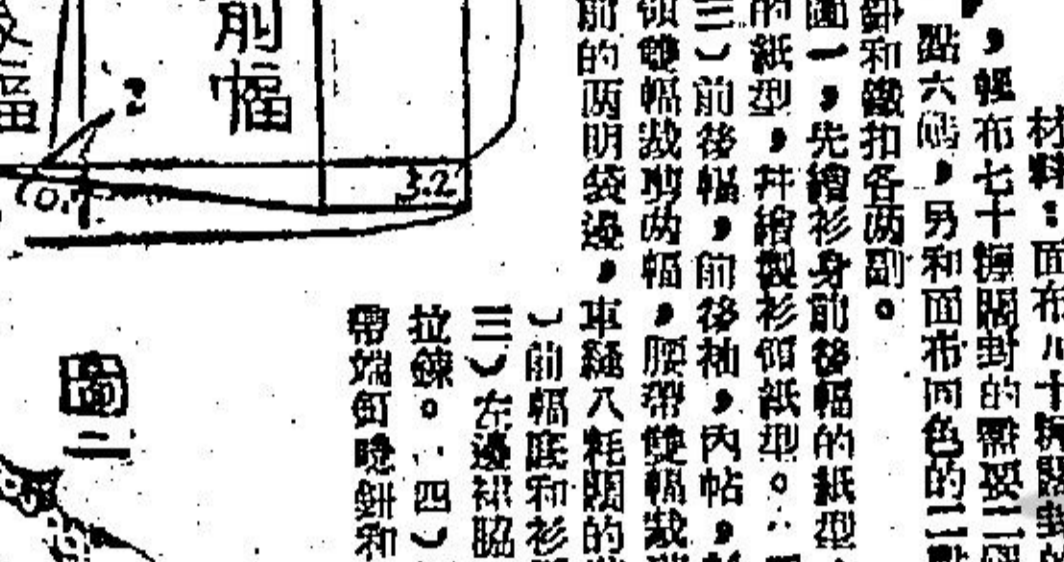 材料：面布八十
，輕布七十擓闊封的需要二碼
點六碼，另和面布同色的二
鈕和鐵扣各两副。
圖一，先繪衫身前後幅的紙型
的紙型，并繪製衫領紙型。
三）前後幅，前後袖，內帖，
領雙幅裁剪两幅，腰帶雙幅裁
前的两明袋邊，車縫八耗闊的
）前幅底和衫
三）左邊裙脇
拉鍊。四）
帶端釘晚鈕和
前幅
3.2
圖二